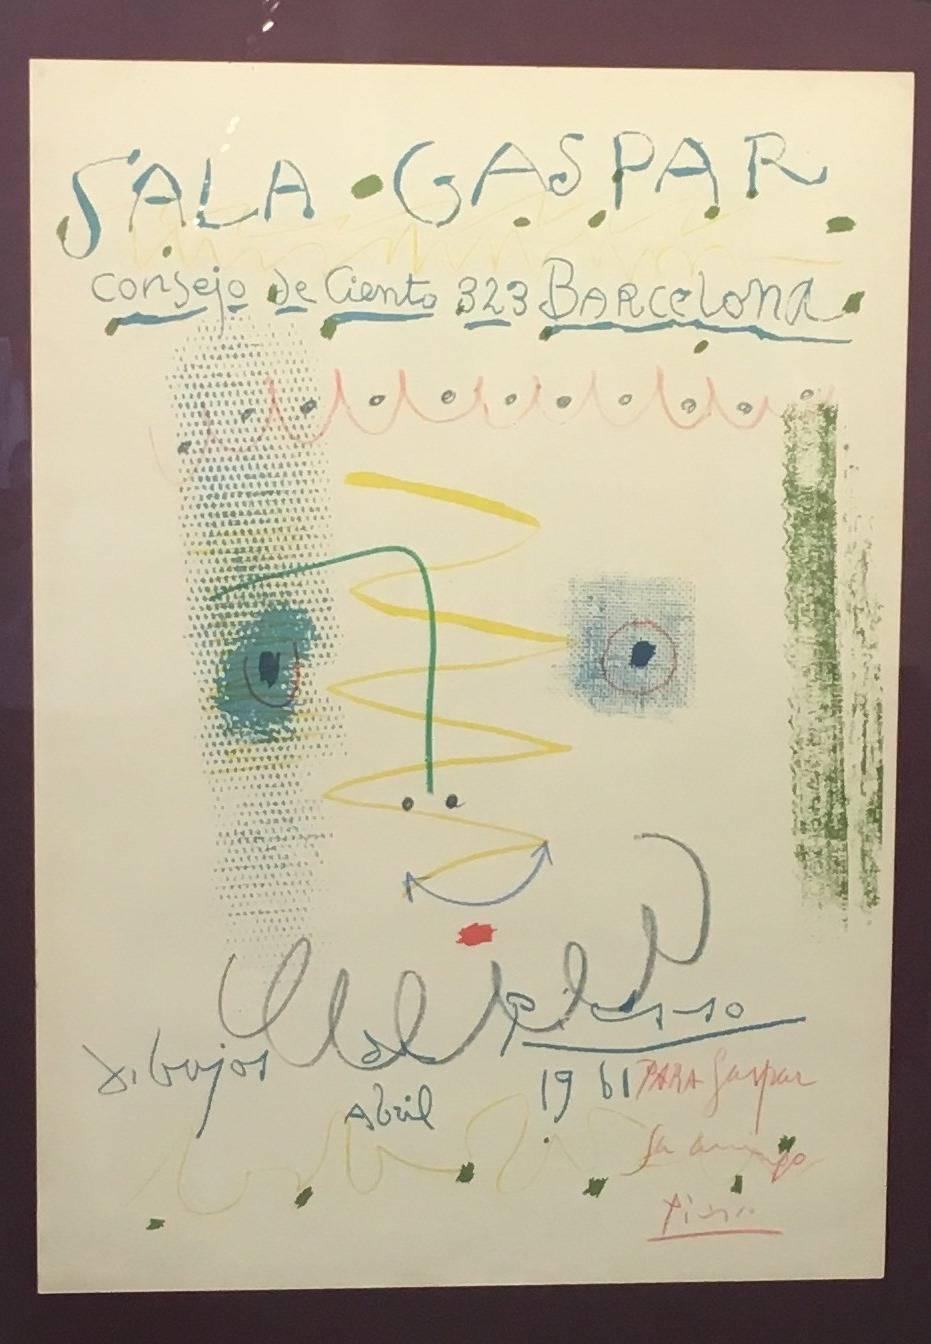 SALA GASPAR
consejo de Ciento 323 BARCelona
dibujos de Picasso
Abril 1961
PARA Gaspar
su amigo
Picasso